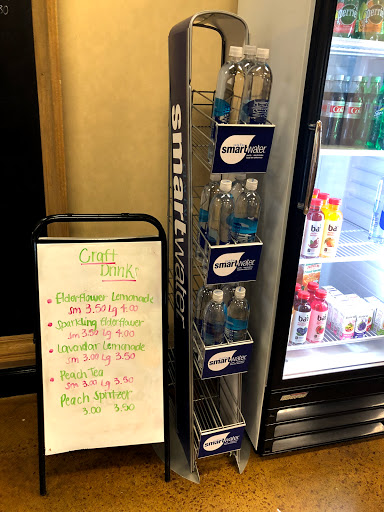 Craft
Drinks
Elderflower Lemonade
sm 3.50 Lg 4.00
Sparkling Elderflower
sm 3.50 Lg 4.00
Lavendar Lemonade
sm 3.00 Lg 3.50
Peach Tea
sm 3.00 Lg 3.50
Peach Spritzer
3.00 3.50
smartwater
smartwater
smartwater
smartwater
smartwater
bai
bai
bai
bai